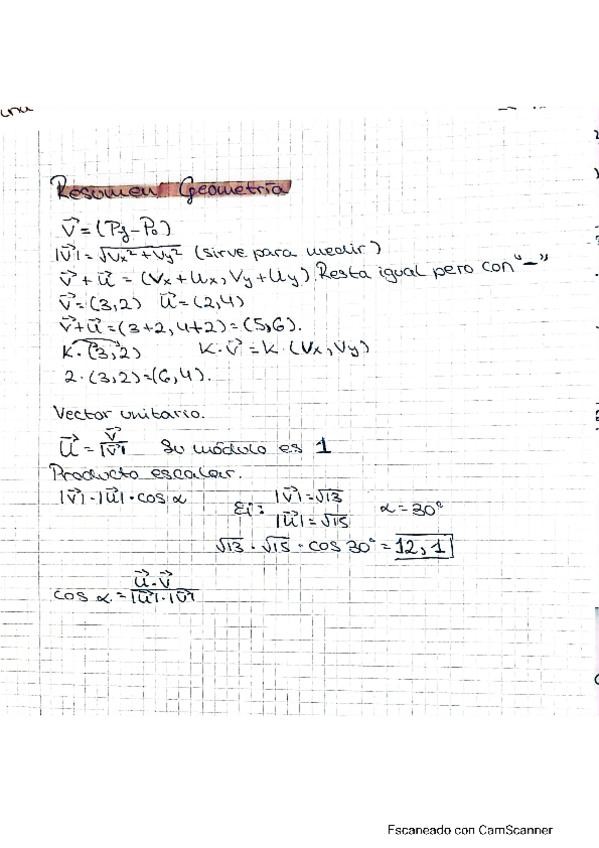 Resumen Geometría
v⃗ = (Pf - P0)
|v⃗| = √Vx² + Vy² (sirve para medir)
v⃗ + u⃗ = (Vx + Ux, Vy + Uy). Resta igual pero con "-"
v⃗ = (3,2) u⃗ = (2,4)
v⃗ + u⃗ = (3+2, 4+2) = (5,6).
K · (3,2) K · v⃗ = K · (Vx, Vy)
2 · (3,2) = (6,4).
Vector unitario.
u⃗ = v⃗/|v⃗| Su módulo es 1
Producto escalar.
|v⃗| · |u⃗| · cos α Ej: |v⃗| = √13 |u⃗| = √15 α = 30°
√13 · √15 · cos 30° = 12,1
cos α = u⃗ · v⃗/|u⃗| · |v⃗|
Escaneado con CamScanner